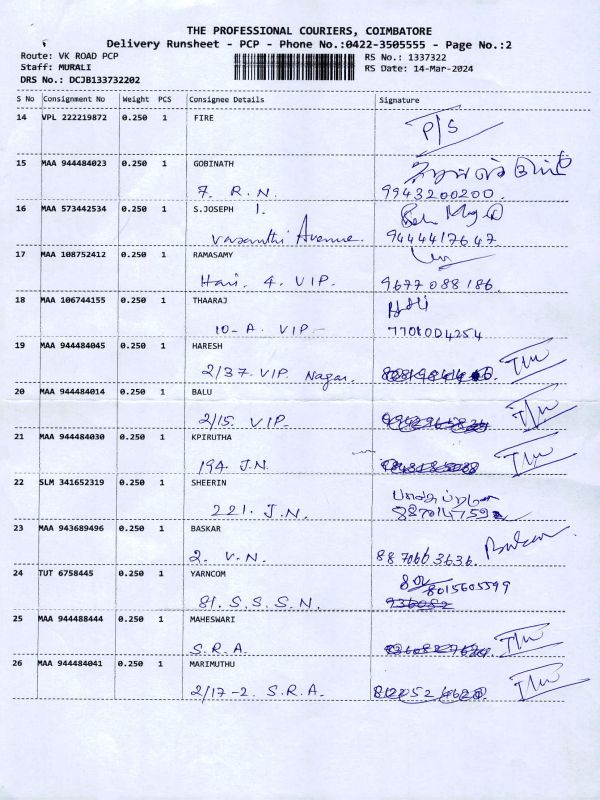 THE PROFESSIONAL COURIERS, COIMBATORE
Delivery Runsheet - PCP - Phone No.:0422-3505555 - Page No.:2
Route: VK ROAD PCP
RS No.: 1337322
Staff: MURALI
RS Date: 14-Mar-2024
DRS No.: DCJB133732202
S No Consignment No Weight PCS Consignee Details Signature
14 VPL 222219872 0.250 1 FIRE
P/S
15 MAA 944484023 0.250 1 GOBINATH
7. R.N. 9943200200.
16 MAA 573442534 0.250 1 S.JOSEPH 1.
Vasanthi Avenue. 9444417647
17 MAA 108752412 0.250 1 RAMASAMY
Hari. 4. VIP. 9677088186.
18 MAA 106744155 0.250 1 THAARAJ
10-A. VIP- 7701004254
19 MAA 944484045 0.250 1 HARESH
2/37. VIP. Nagar.
20 MAA 944484014 0.250 1 BALU
2/15. VIP.
21 MAA 944484030 0.250 1 KPIRUTHA
194. J.N.
22 SLM 341652319 0.250 1 SHEERIN
221. J.N.
23 MAA 943689496 0.250 1 BASKAR
2. V.N. 8870663636. Baskar
24 TUT 6758445 0.250 1 YARNCOM
8015605599
81. S.S.S.N. 936052
25 MAA 944488444 0.250 1 MAHESWARI
S.R.A.
26 MAA 944484041 0.250 1 MARIMUTHU
2/17-2. S.R.A.